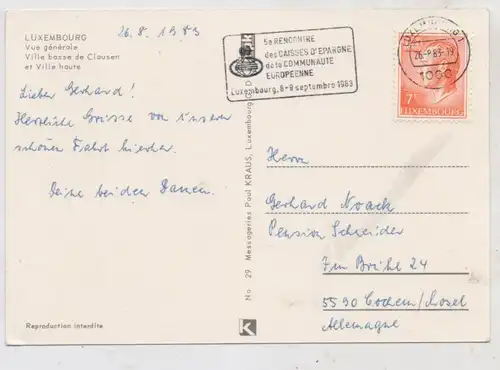 LUXEMBOURG
Vue générale
Ville basse de Clausen
et Ville haute
26.8.1983
5e RENCONTRE
des CAISSES D'EPARGNE
de la COMMUNAUTE
EUROPEENNE
Luxembourg, 8-9 septembre 1983
LUXEMBOURG 1
26-8-83-19
1090
7F
LUXEMBOURG
Lieber Gerhard!
Herzliche Grüsse von unserer
schönen Fahrt hierher.
Deine beiden Damen.
No 29 Messageries Paul KRAUS, Luxembourg
Herrn
Gerhard Noack
Pension Schneider
Im Brühl 24
5590 Cochem/Mosel
Allemagne
Reproduction interdite
K